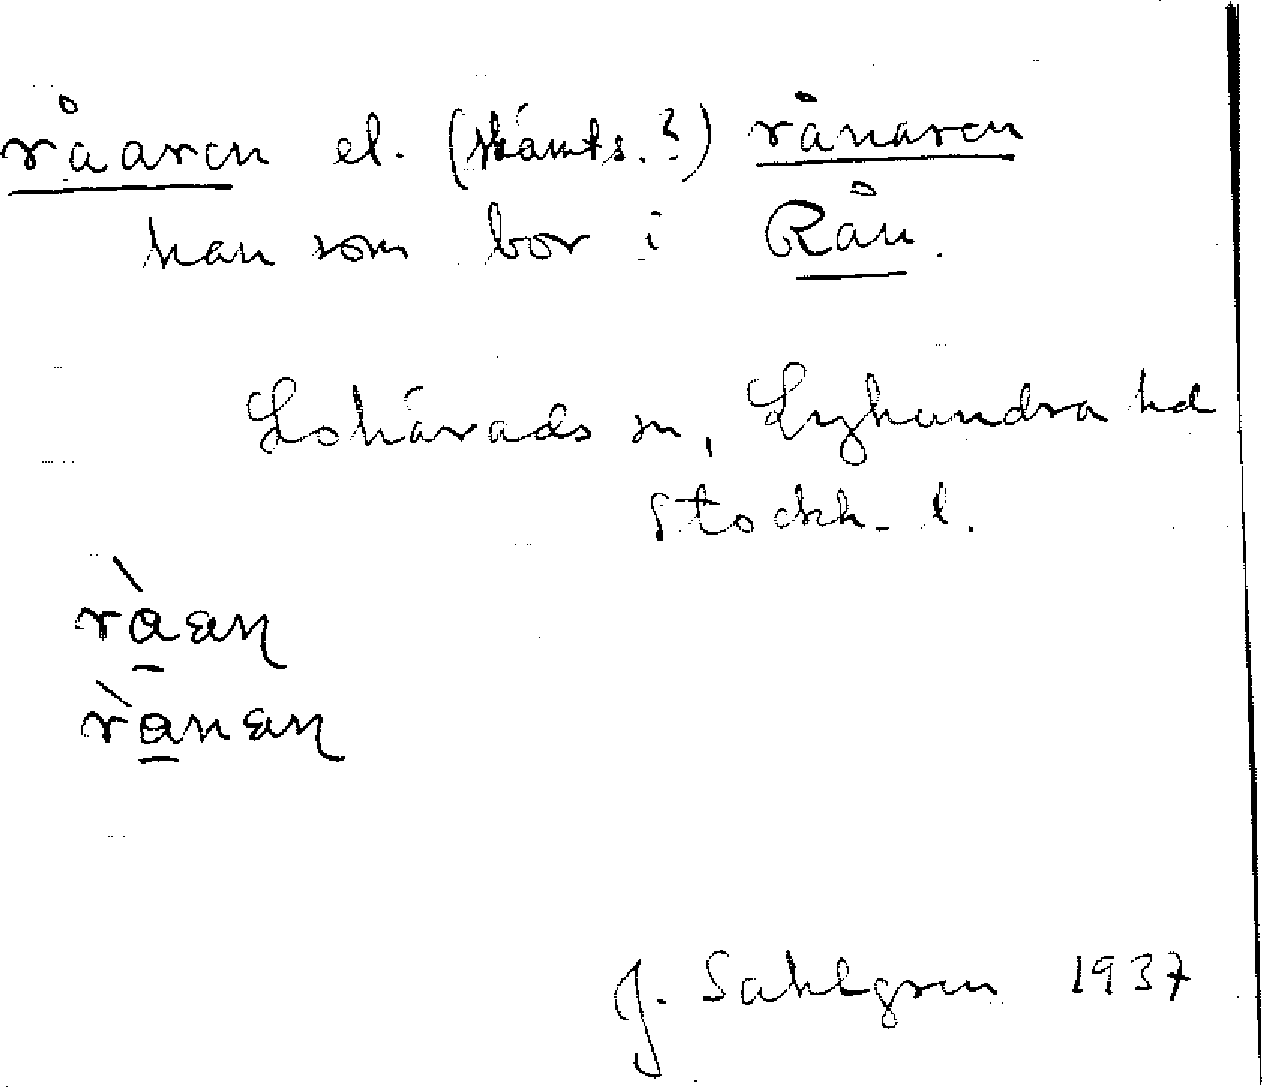 råaren el. (skämts.?) rånaren
han som bor i Rån.
Lohärads sn, Lyhundra hd
Stockh. l.
ràan
rànan
J. Sahlgren 1937